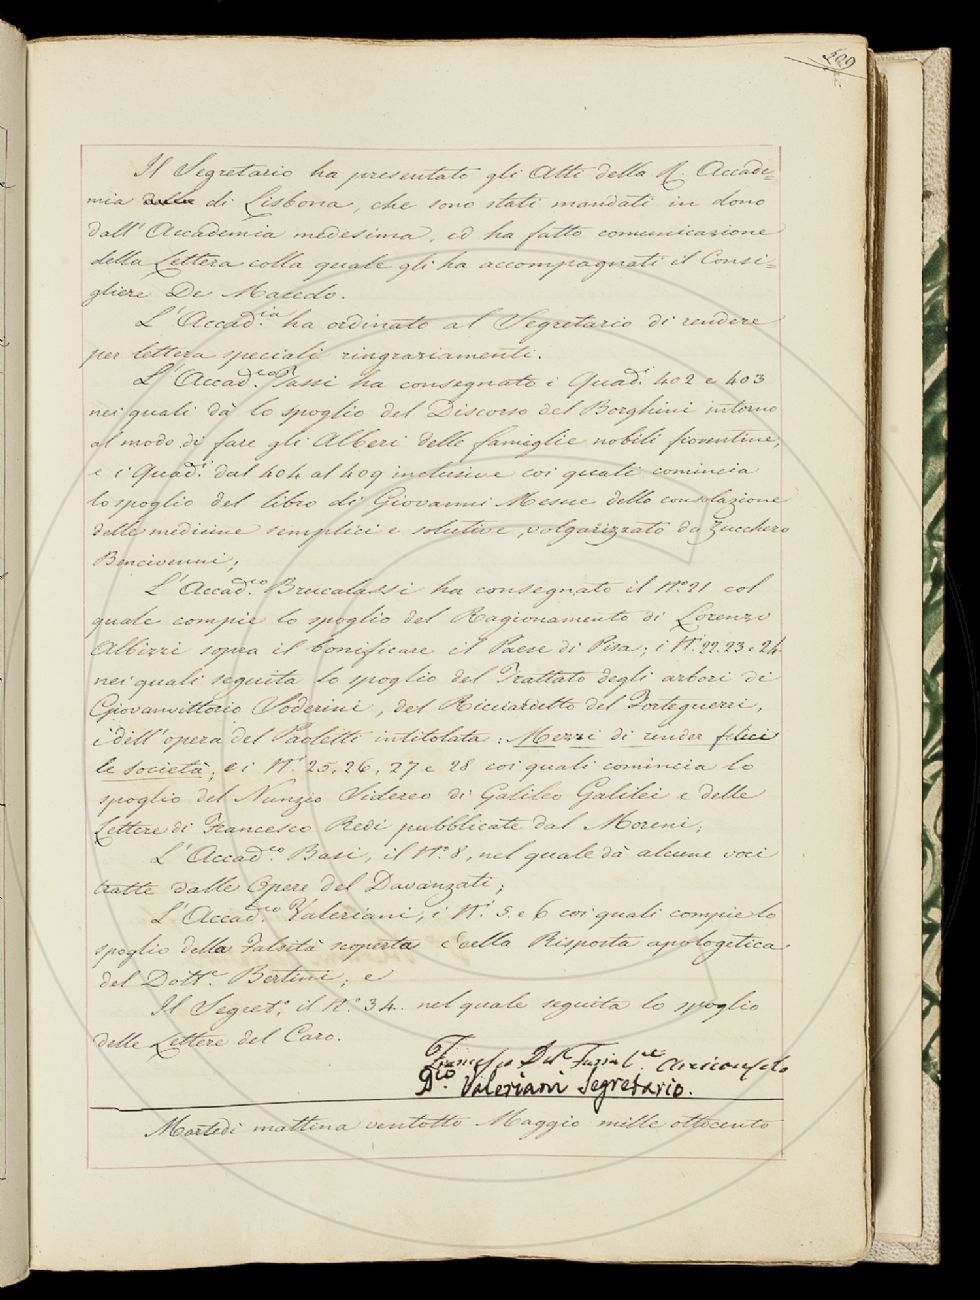 509
Il Segretario ha presentato gli Atti della R. Accade=
mia di Lisbona, che sono stati mandati in dono
dall'Accademia medesima, ed ha fatto comunicazione
della Lettera colla quale gli ha accompagnati il Consi=
gliere De Macedo.
L'Accad.ia ha ordinato al Segretario di rendere
per lettera speciali ringraziamenti.
L'Accad.co Tassi ha consegnato i Quad.i 402 e 403
nei quali dà lo spoglio del Discorso del Borghini intorno
al modo di fare gli Alberi delle famiglie nobili fiorentine,
e i Quad.i dal 404 al 409 inclusive coi quali comincia
lo spoglio del libro di Giovanni Mesue della consolazione
delle medicine semplici e solutive, volgarizzato da Zucchero
Bencivenni;
L'Accad.co Brucalassi ha consegnato il N.o 21 col
quale compie lo spoglio del Ragionamento di Lorenzo
Albizzi sopra il bonificare il Paese di Pisa; i N.i 22. 23 e 24
nei quali seguita lo spoglio del Trattato degli arbori di
Giovanvittorio Soderini, del Ricciardetto del Forteguerri,
e dell'opera del Paoletti intitolata: Mezzi di render felici
le società; e i N.i 25, 26, 27 e 28 coi quali comincia lo
spoglio del Nunzio Sidereo di Galileo Galilei e delle
Lettere di Francesco Redi pubblicate dal Moreni;
L'Accad.co Basi, il N.o 8, nel quale dà alcune voci
tratte dalle Opere del Davanzati;
L'Accad.co Valeriani, i N.i 5. e 6 coi quali compie lo
spoglio della Falsità scoperta e della Risposta apologetica
del Dott.e Bertini; e
Il Segret.o il N.o 34. nel quale seguita lo spoglio
delle Lettere del Caro.
Francesco Del Furia Arciconsolo
D.co Valeriani Segretario.
Martedì mattina ventotto Maggio mille ottocento